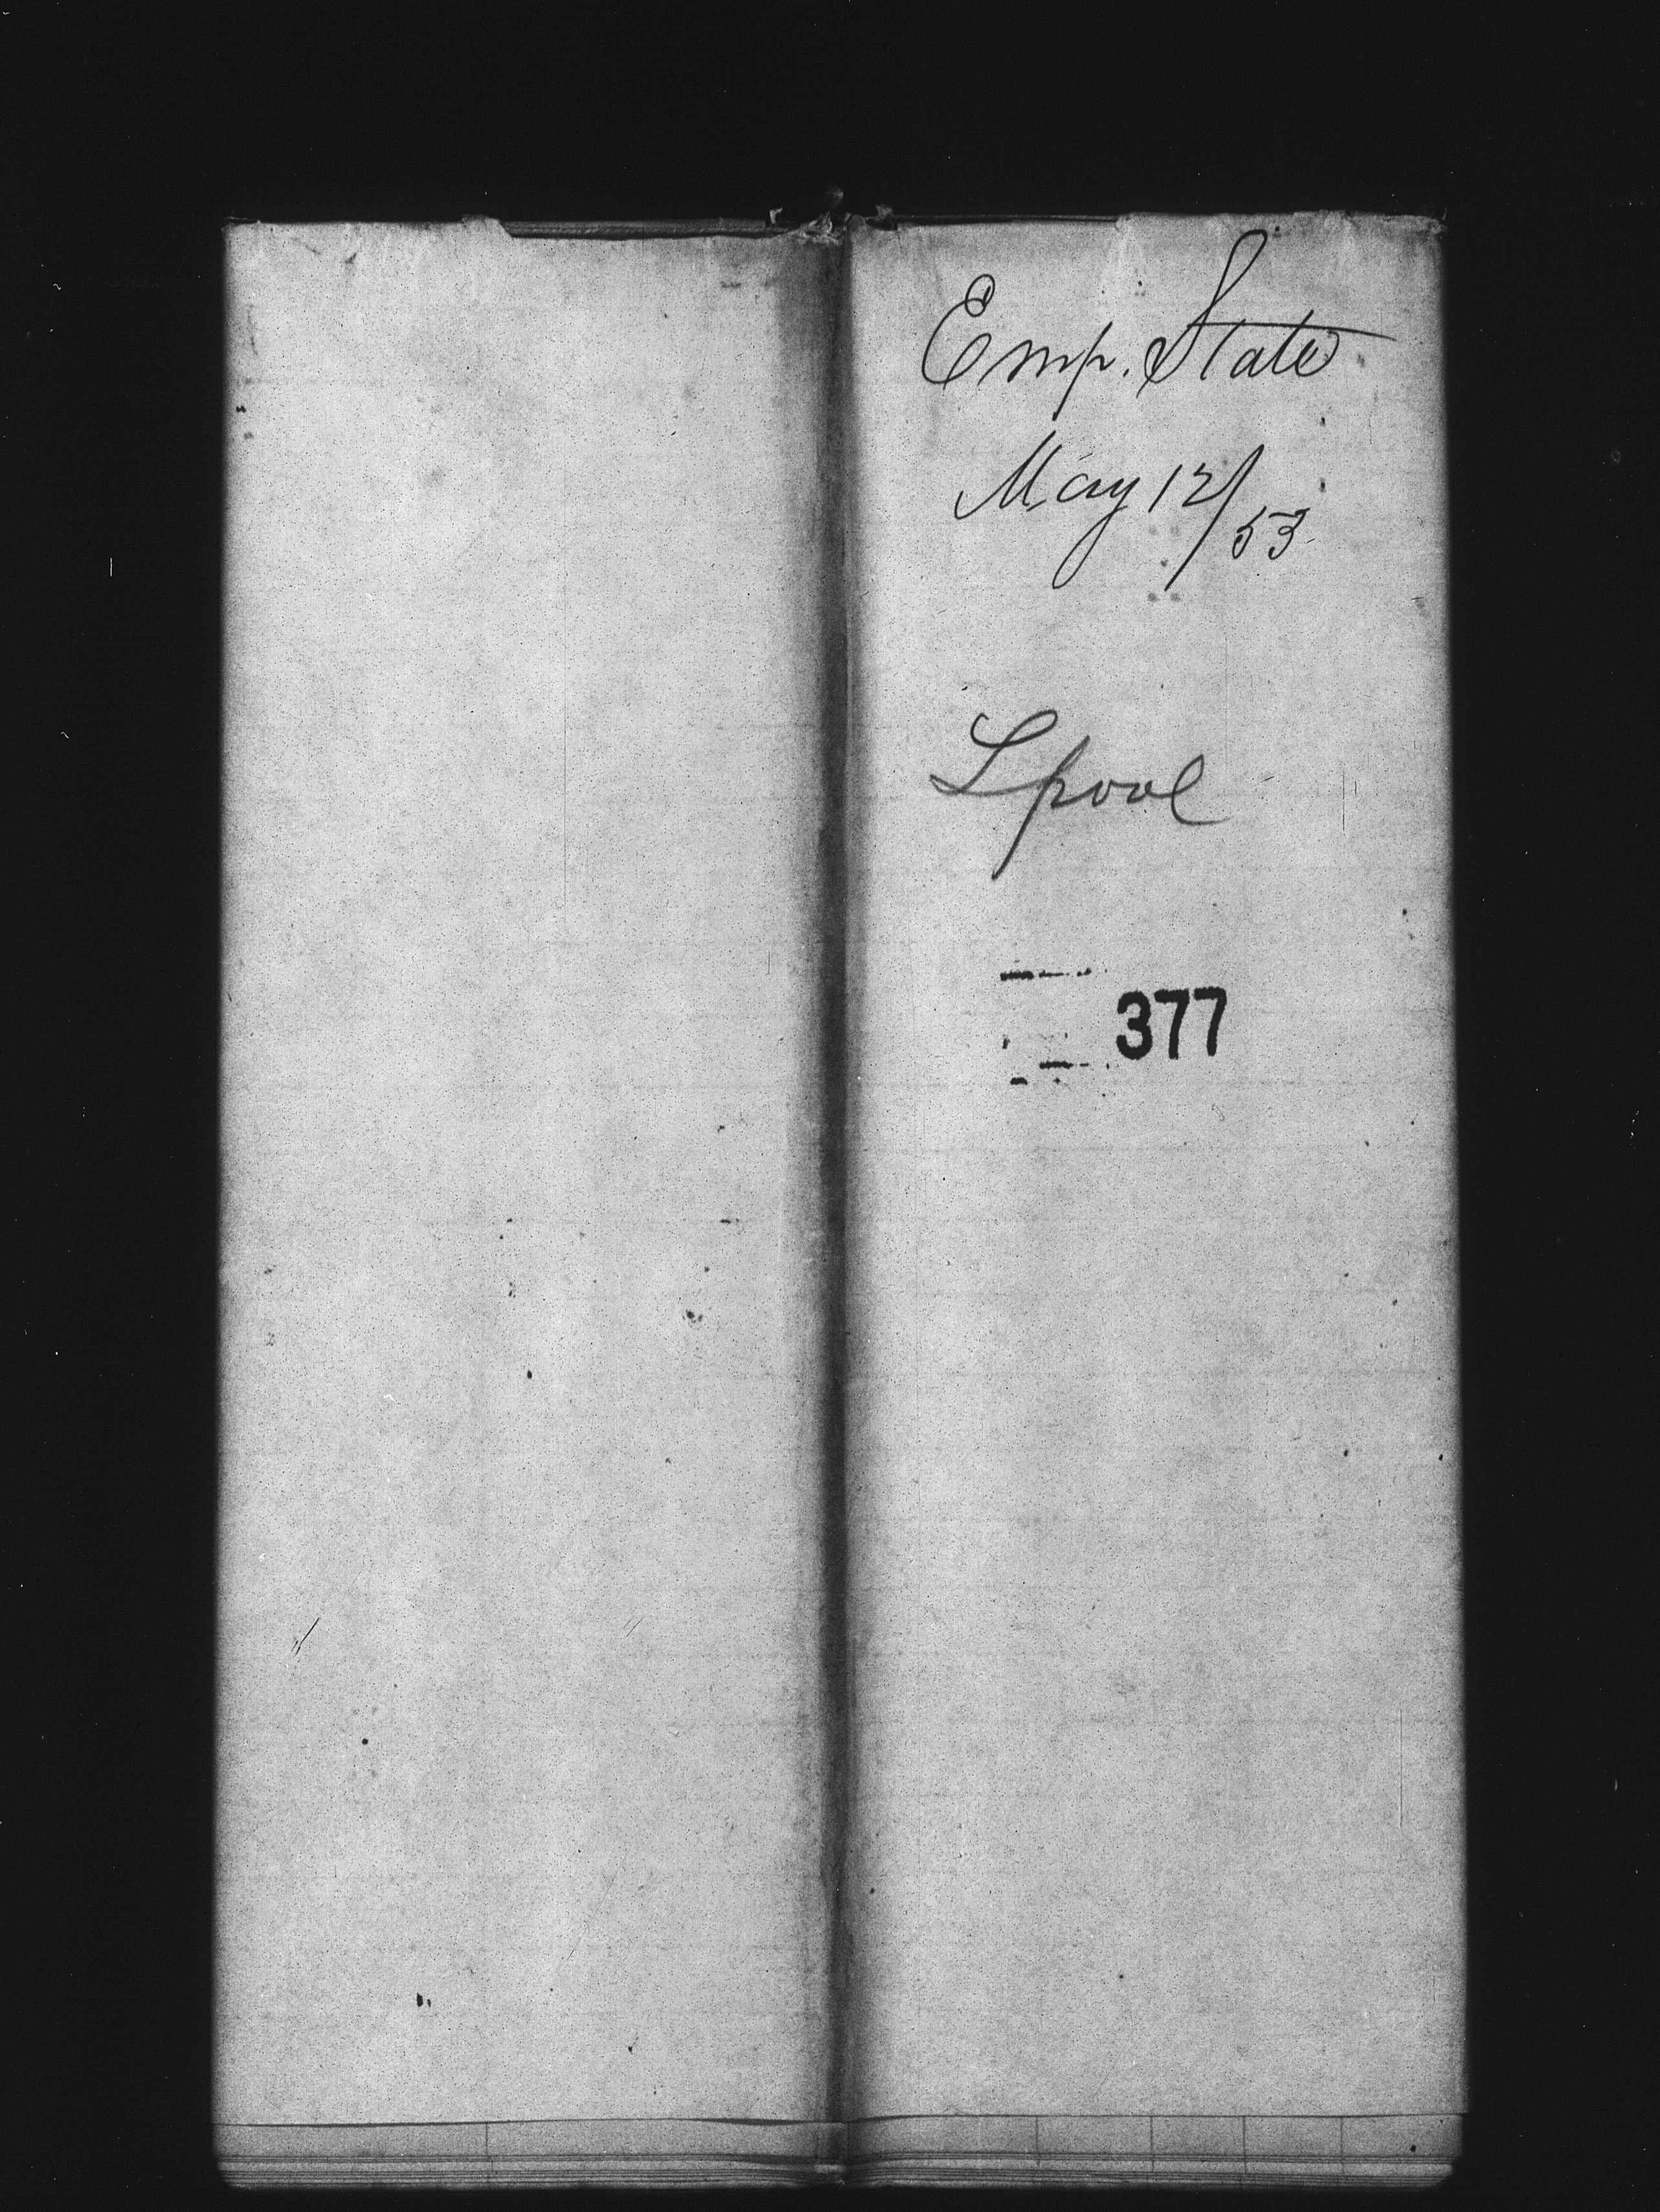 Emp. State
May 12/53
Lpool
377